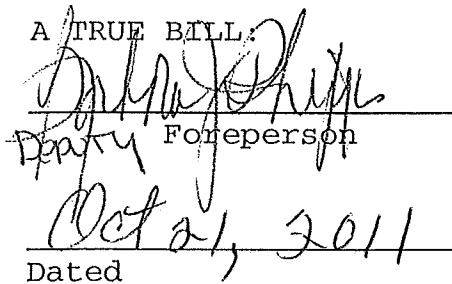 A TRUE BILL:
Deputy Foreperson
Oct 21, 2011
Dated